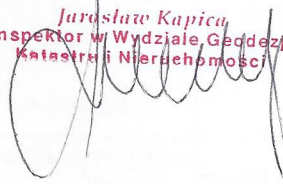 Jarosław Kapica
nspektor w Wydziale Geodezj
Katastru i Nieruchomości